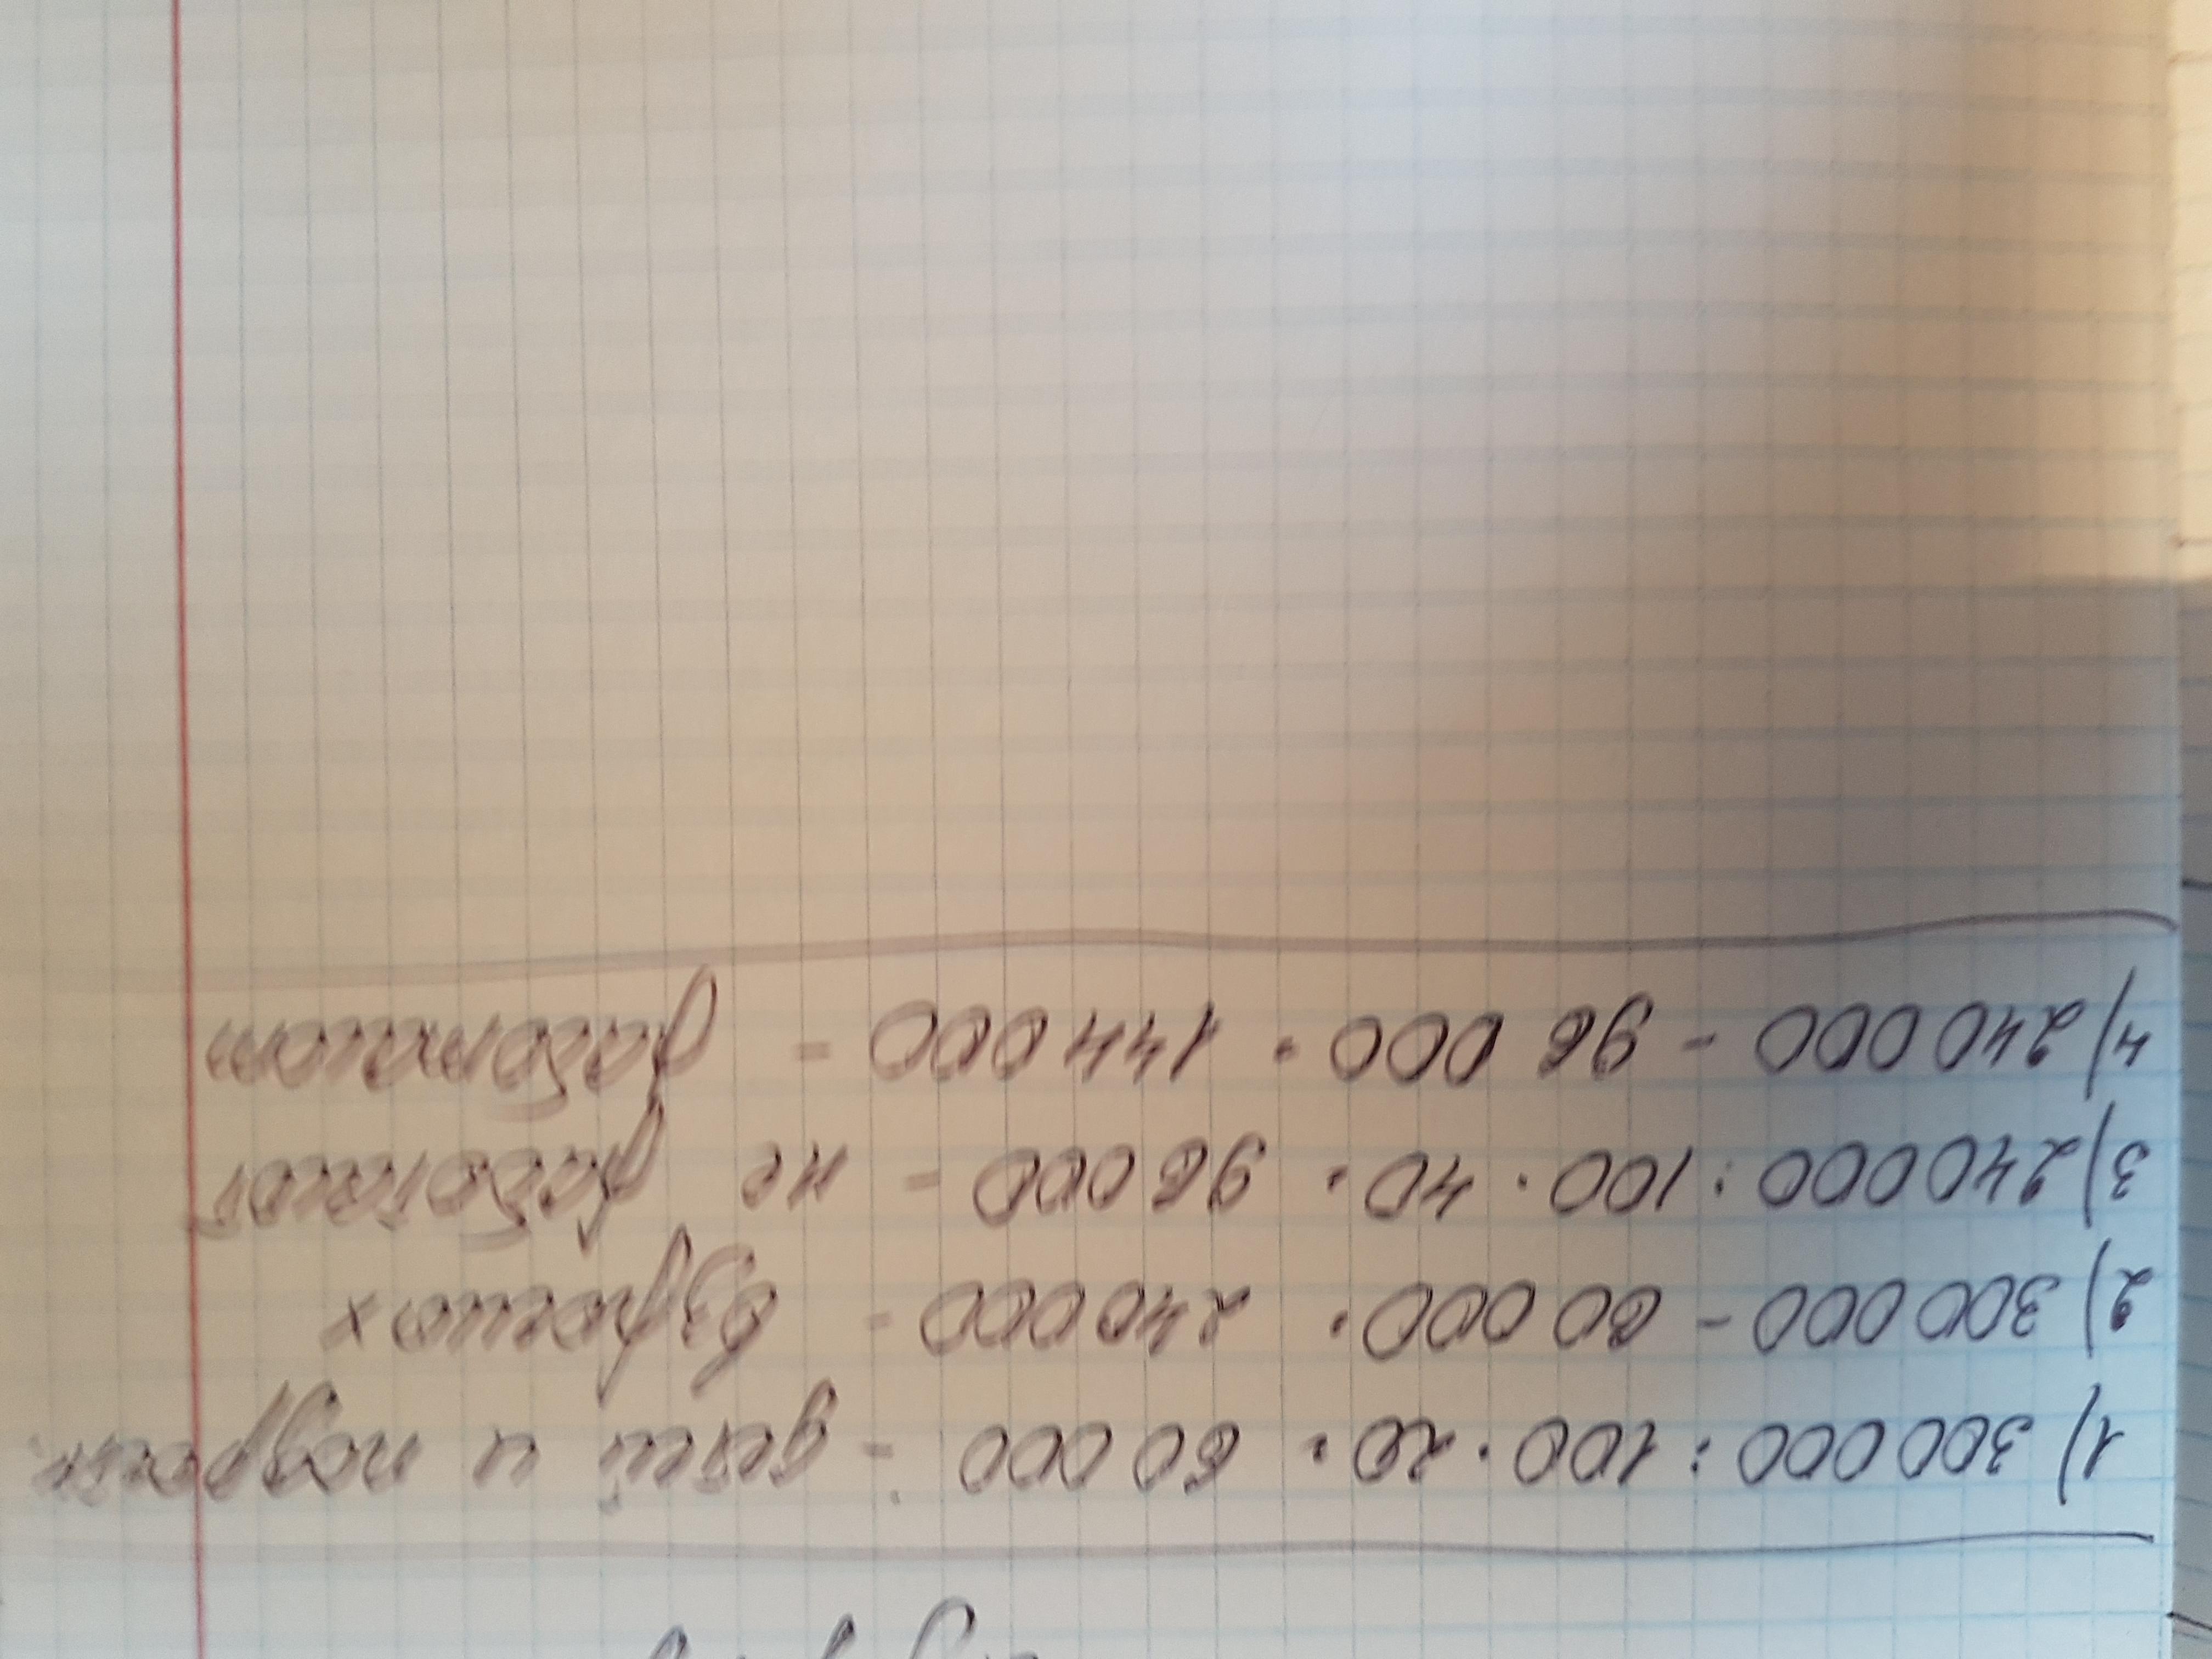 1) 300 000 : 100 · 20 = 60 000 - детей и подростк.
2) 300 000 - 60 000 = 240 000 - взрослых
3) 240 000 : 100 · 40 = 96 000 - не работают
4) 240 000 - 96 000 = 144 000 - работают